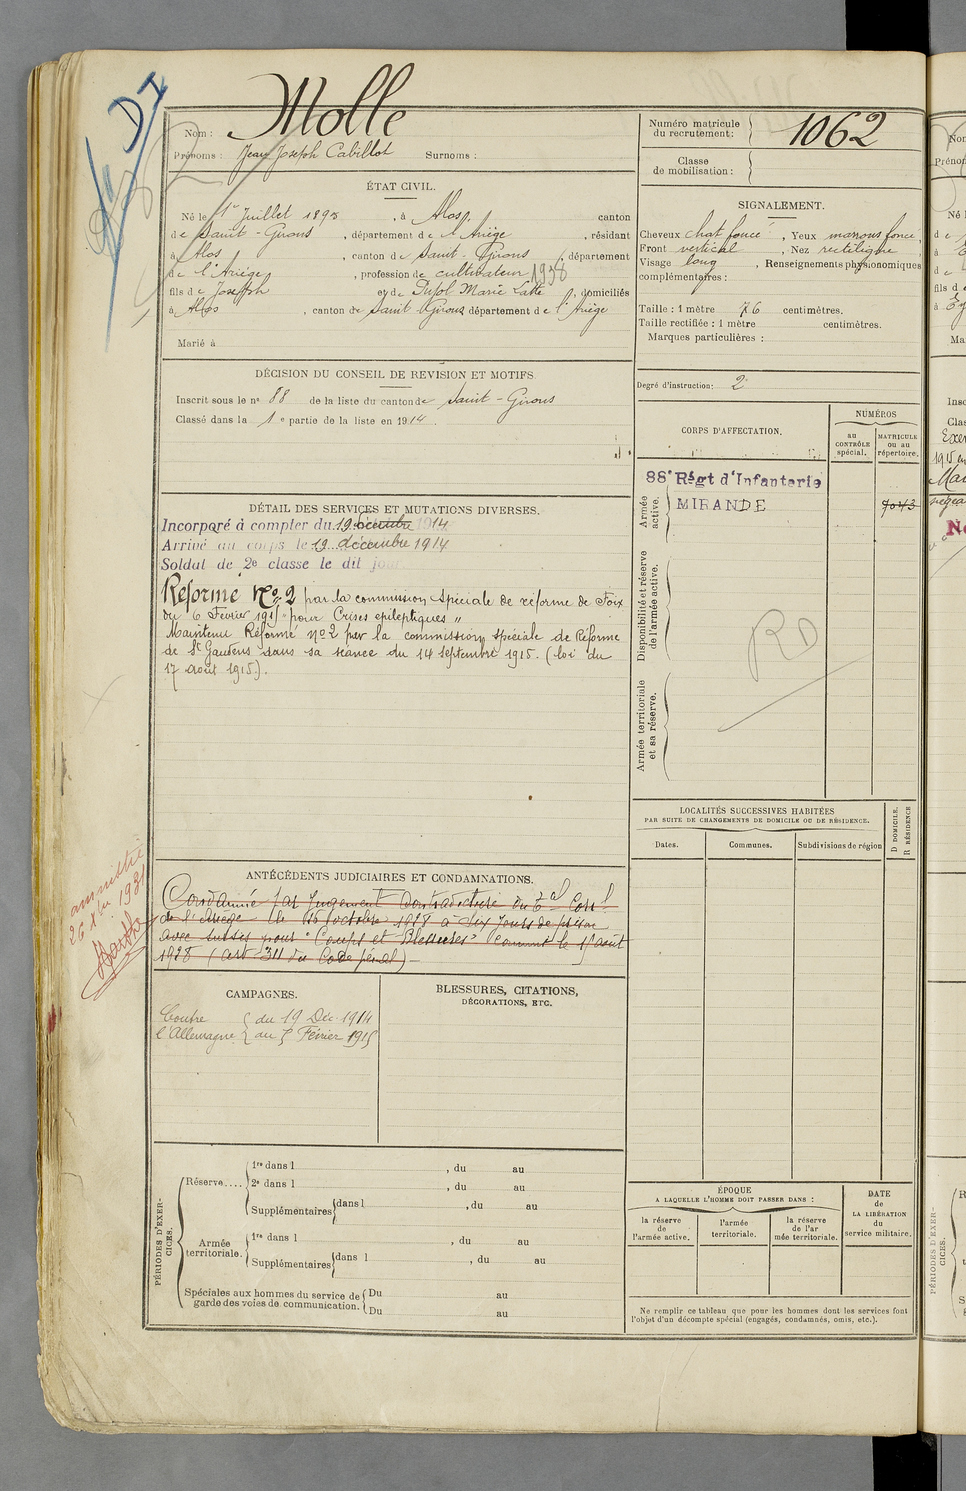 Nom : Molle
Prénoms : Jean Joseph Cabillot Surnoms :
Numéro matricule du recrutement : 1062
Classe de mobilisation :
ÉTAT CIVIL.
Né le 1er Juillet 1895, à Alos, canton
de Saint-Girons, département de l'Ariège, résidant
à Alos, canton de Saint-Girons, département
de l'Ariège, profession de cultivateur 1938
fils de Joseph et de Pujol Marie, domiciliés
à Alos, canton de Saint Girons département de l'Ariège
Marié à
SIGNALEMENT.
Cheveux chat foncé, Yeux marrons foncé,
Front vertical, Nez rectiligne,
Visage long, Renseignements physionomiques
complémentaires :
Taille : 1 mètre 76 centimètres.
Taille rectifiée : 1 mètre centimètres.
Marques particulières :
Degré d'instruction : 2
DÉCISION DU CONSEIL DE RÉVISION ET MOTIFS.
Inscrit sous le n° 88 de la liste du canton de Saint-Girons
Classé dans la 1e partie de la liste en 1914.
CORPS D'AFFECTATION.
NUMÉROS
au CONTRÔLE spécial.
MATRICULE ou au répertoire.
88e Régt d'Infanterie
MIRANDE
7043
Armée active.
Disponibilité et réserve de l'armée active.
Armée territoriale et sa réserve.
RD
DÉTAIL DES SERVICES ET MUTATIONS DIVERSES.
Incorporé à compter du 19 décembre 1914
Arrivé au corps le 19 décembre 1914
Soldat de 2e classe le dit jour
Réformé No 2 par la commission Spéciale de réforme de Foix
du 6 Février 1915 "pour Crises epileptiques"
Maintenu Réformé No 2 par la commission spéciale de Réforme
de St Gaudens dans sa séance du 14 septembre 1915. (loi du
17 août 1915).
LOCALITÉS SUCCESSIVES HABITÉES
PAR SUITE DE CHANGEMENTS DE DOMICILE OU DE RÉSIDENCE.
Dates.
Communes.
Subdivisions de région
D DOMICILE.
R RÉSIDENCE
ANTÉCÉDENTS JUDICIAIRES ET CONDAMNATIONS.
Condamné par Jugement Contradictoire du Tal Corrl
de l'Ariège le 16 octobre 1928 à dix Jours de prison
avec sursis pour "Coups et Blessures" commis le 15 août
1928 (art 311 du Code pénal)
amnistié
26 Xbre 1931
CAMPAGNES.
Contre l'Allemagne { du 19 Déc. 1914
au 5 Février 1915
BLESSURES, CITATIONS,
DÉCORATIONS, ETC.
PÉRIODES D'EXERCICES.
Réserve....
1re dans l , du au
2e dans l , du au
Supplémentaires dans l , du au
Armée territoriale.
1re dans l , du au
Supplémentaires dans l , du au
Spéciales aux hommes du service de garde des voies de communication.
Du au
Du au
ÉPOQUE
A LAQUELLE L'HOMME DOIT PASSER DANS :
la réserve de l'armée active.
l'armée territoriale.
la réserve de l'armée territoriale.
DATE de LA LIBÉRATION du service militaire.
Ne remplir ce tableau que pour les hommes dont les services font
l'objet d'un décompte spécial (engagés, condamnés, omis, etc.).